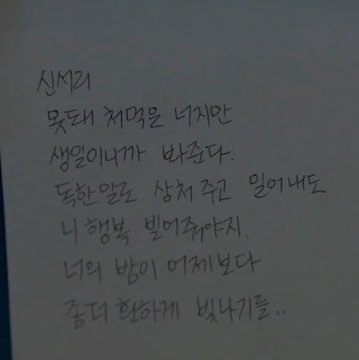 신서리
못돼 처먹은 너지만
생일이니까 봐준다.
독한 말로 상처 주고 밀어내도
니 행복 빌어줘야지.
너의 밤이 어제보다
좀더 환하게 빛나기를..